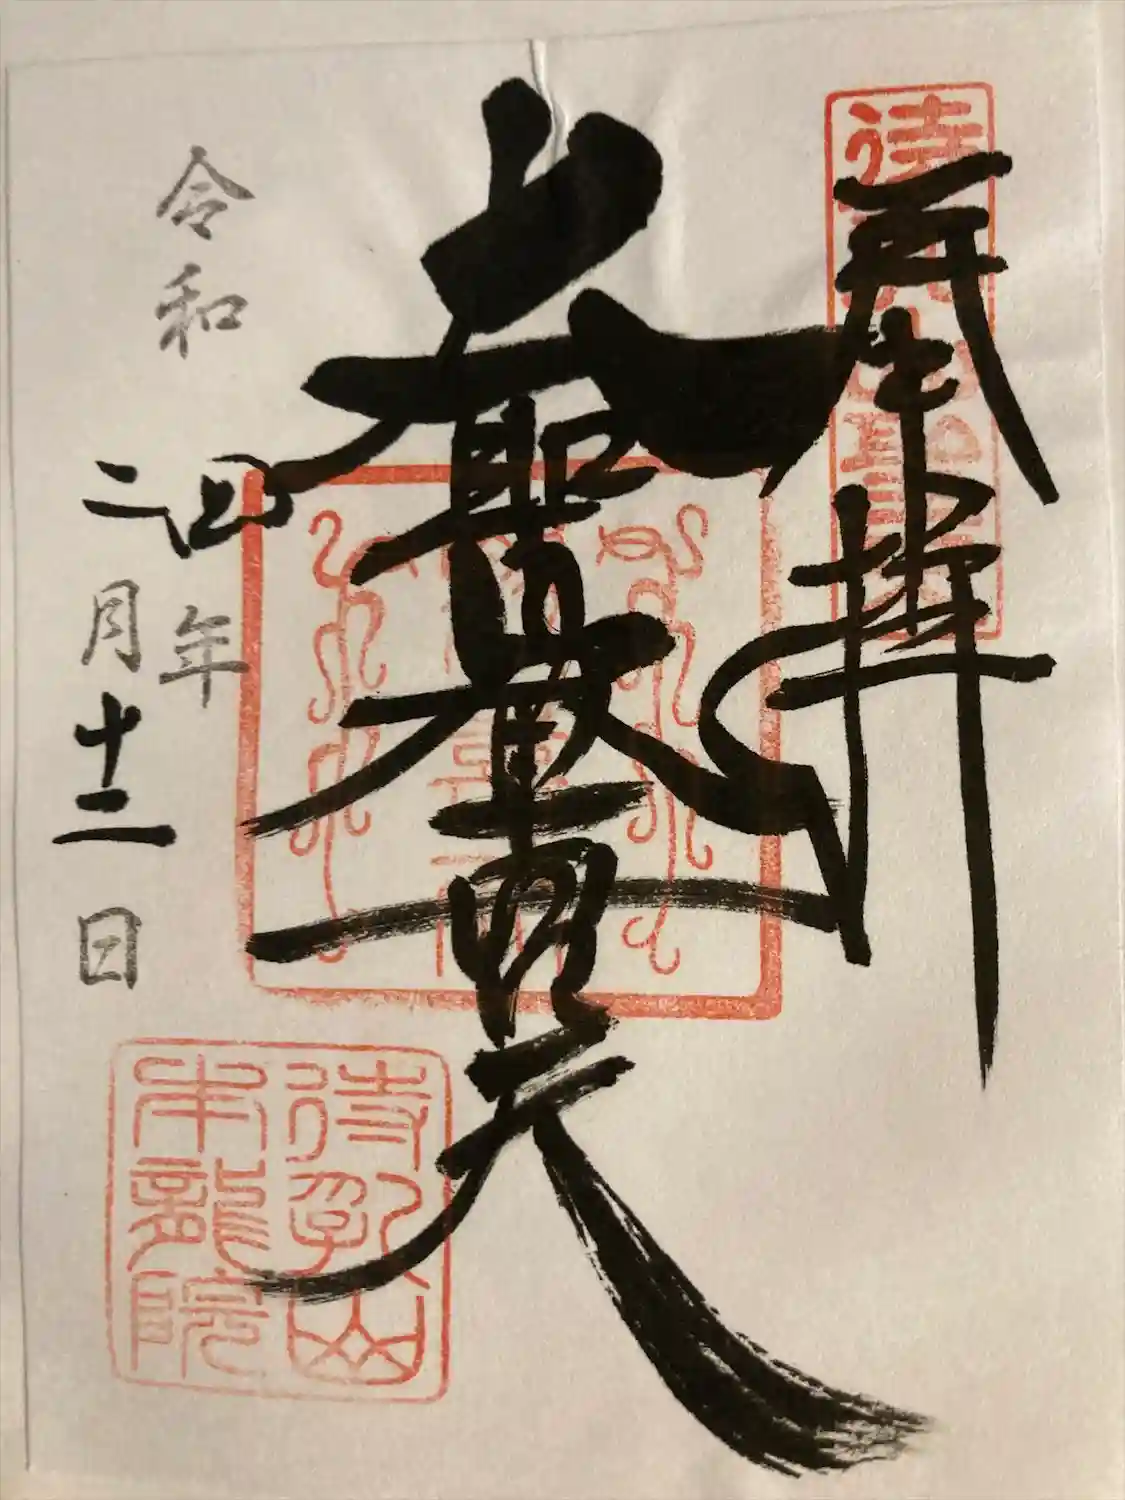 奉拝
大聖歓喜天
令和四年
二月十二日
待乳山聖天
待乳山
本龍院